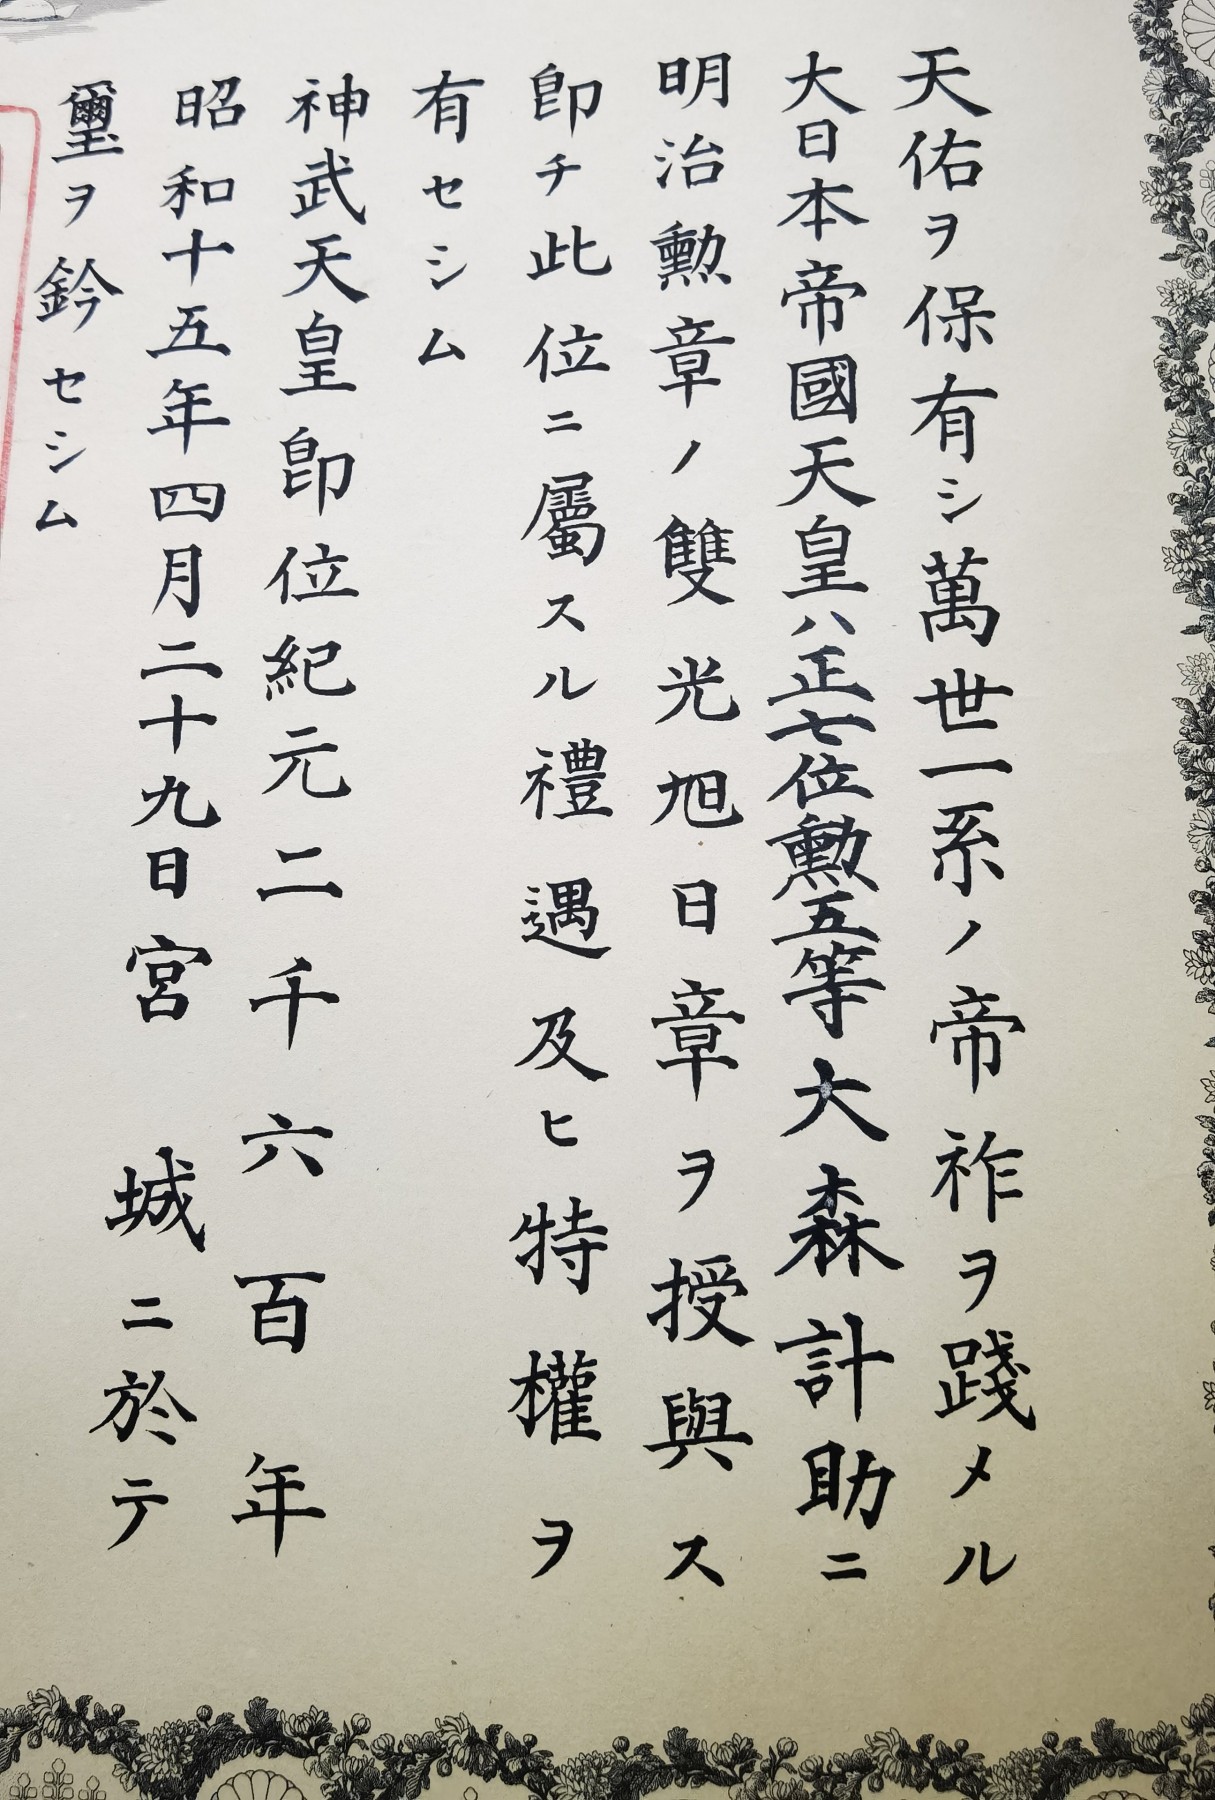 天佑ヲ保有シ萬世一系ノ帝祚ヲ踐メル
大日本帝國天皇ハ正七位勲五等大森計助ニ
明治勲章ノ雙光旭日章ヲ授與ス
卽チ此位ニ屬スル禮遇及ヒ特權ヲ
有セシム
神武天皇卽位紀元二千六百年
昭和十五年四月二十九日宮城ニ於テ
璽ヲ鈐セシム